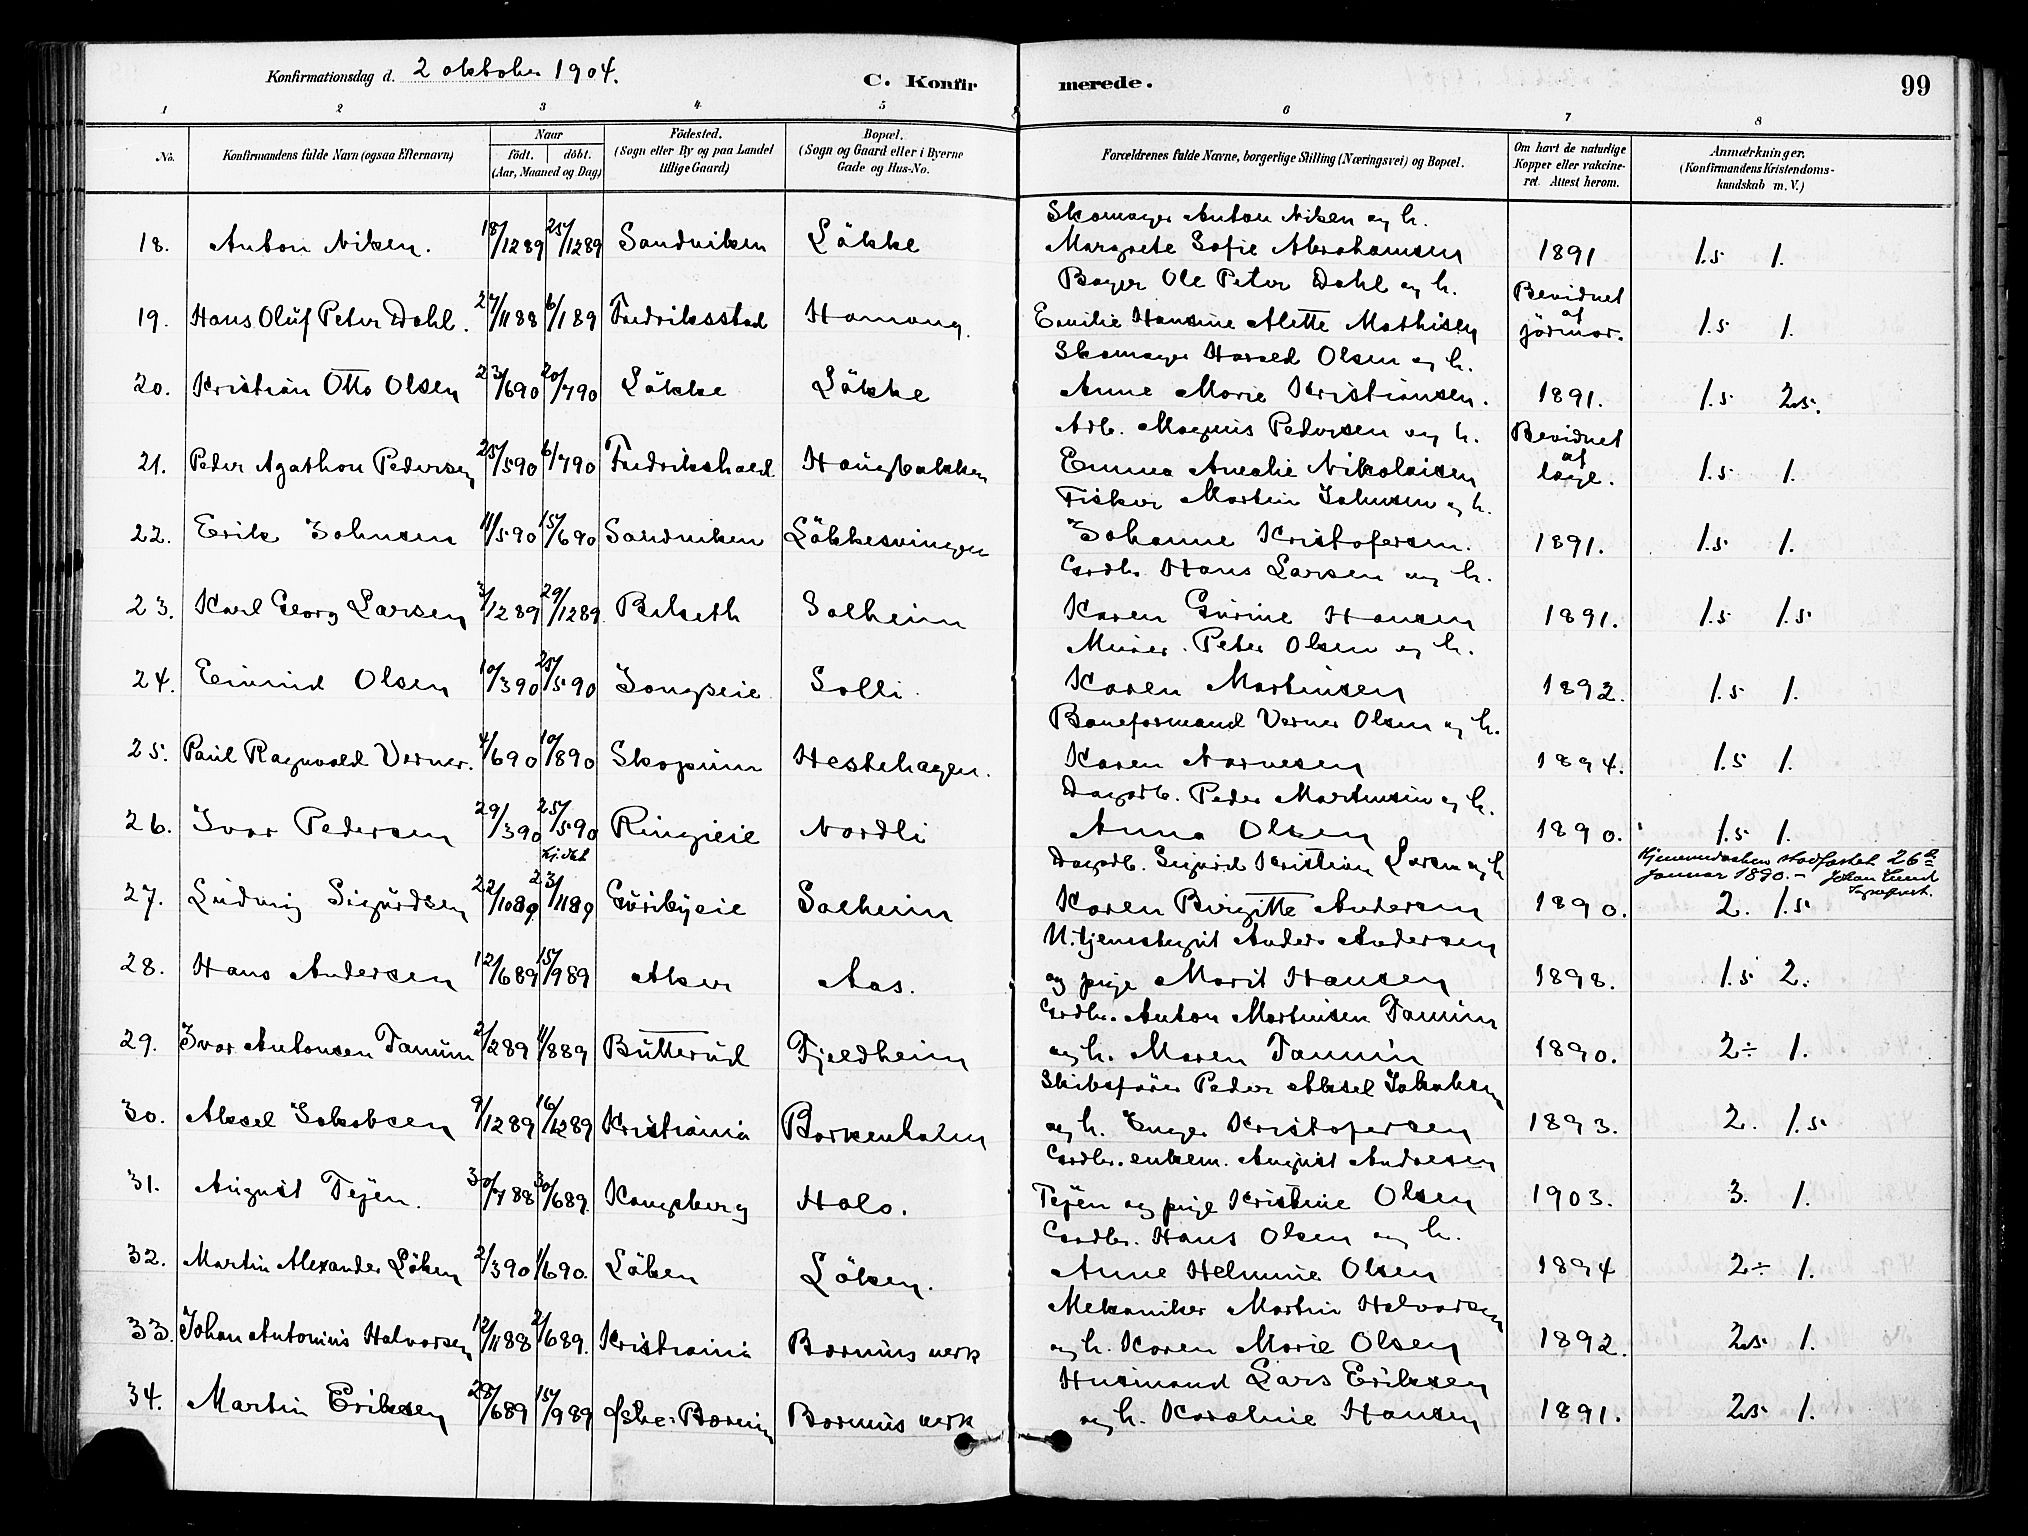 Konfirmationsdag d. 2 oktober 1904.
C. Konfirmerede.
99
1 2 3 4 5 6 7 8
No.
Konfirmandens fulde Navn (ogsaa Efternavn)
Naar
födt. döbt.
(Aar, Maaned og Dag)
Födested.
(Sogn eller By og paa Landet tillige Gaard)
Bopæl.
(Sogn og Gaard eller i Byerne Gade og Hus-No.
Forældrenes fulde Navne, borgerlige Stilling (Næringsvei) og Bopæl.
Om havt de naturlige Kopper eller vakcineret. Attest herom.
Anmærkninger.
(Konfirmandens Kristendomskundskab m. V.)
Skomager Anton Nilsen og h.
18. Anton Nilsen. 18/12 89 25/12 89 Sandviken Lökke Margrete Sofie Abrahamsen 1891 1.5 1.
Bager Ole Peter Dahl og h.
19. Hans Oluf Peter Dahl. 27/11 88 6/1 89 Fredriksstad Hamang. Emilie Hansine Alette Mathisen Bevidnet af jormor. 1.5 1.
Skomager Harald Olsen og h.
20. Kristian Otto Olsen 23/6 90 20/7 90 Lökke Lökke Anne Marie Kristiansen. 1891. 1.5 2.5.
Arb. Magnus Pedersen og h.
21. Peder Agathon Pedersen 25/5 90 6/7 90 Fredrikshald Haugbakken Emma Amalie Nikolaisen Bevidnet af læge. 1.5 1.
Fisker Martin Johnsen og h.
22. Erik Johnsen 11/5 90 15/6 90 Sandviken Lökkesvingen Johanne Kristofersen. 1891. 1.5 1.
Gardbr. Hans Larsen og h.
23. Karl Georg Larsen 3/12 89 29/12 89 Belseth Solheim Karen Gurine Hansen 1891. 1.5 1.5
Murer. Peter Olsen og h.
24. Eivind Olsen 10/3 90 25/5 90 Jongseie Solli. Karen Martinsen 1892. 1.5 1.
Baneformand Verner Olsen og h.
25. Paul Ragnvald Verner. 4/6 90 10/8 90 Skopum Hestehagen. Karen Narvesen 1894. 1.5 1.
Dagarb. Peder Martinsen og h.
26. Ivar Pedersen 29/3 90 25/5 90 Ringieie Nordli Anna Olsen 1890. 1.5 1.
Kjemmedaaben stadfæstet 26de januar 1890. - Johan Lund Sogneprest.
Dagarb. Sigurd Kristian Larsen og h
27. Ludvig Sigurdsen 22/10 89 hj.dbt 23/11 89 Guribyeie Solheim Karen Birgitte Andersen 1890. 2. 1.5
U. tjenestegut Anders Andersen
28. Hans Andersen 12/6 89 15/9 89 Aker Aas. og pige Marit Hansen 1898. 1.5 2.
Gardbr. Anton Martinsen Tanum
29. Ivar Antonsen Tanum 2/2 89 11/8 89 Butterud Fjeldheim og h. Maren Tanum 1890. 2÷ 1.
Skibsfører Peder Aksel Jakobsen
30. Aksel Jakobsen 9/12 89 16/12 89 Kristiania Borkenholm og h. Inger Kristofersen 1893. 2. 1.5
Gardbr. enkem. August Andresen
31. August Tejen. 30/7 88 30/6 89. Kongsberg Halo. Tejen og pige Kristine Olsen 1903. 3. 1.
Gardbr. Hans Olsen og h.
32. Martin Alexander Löken 2/3 90 1/6 90. Löken Löken. Anne Helmine Olsen 1894 2÷ 1.
Mekaniker Martin Halvorsen
33. Johan Antonius Halvorsen 12/11 88 2/6 89. Kristiania Bærums verk og h. Karen Marie Olsen 1892. 2.5 1.
Husmand Lars Eriksen
34. Martin Eriksen 28/6 89 15/9 89 Østre Bærum Bærums verk og h. Karoline Hansen 1891. 2.5 1.